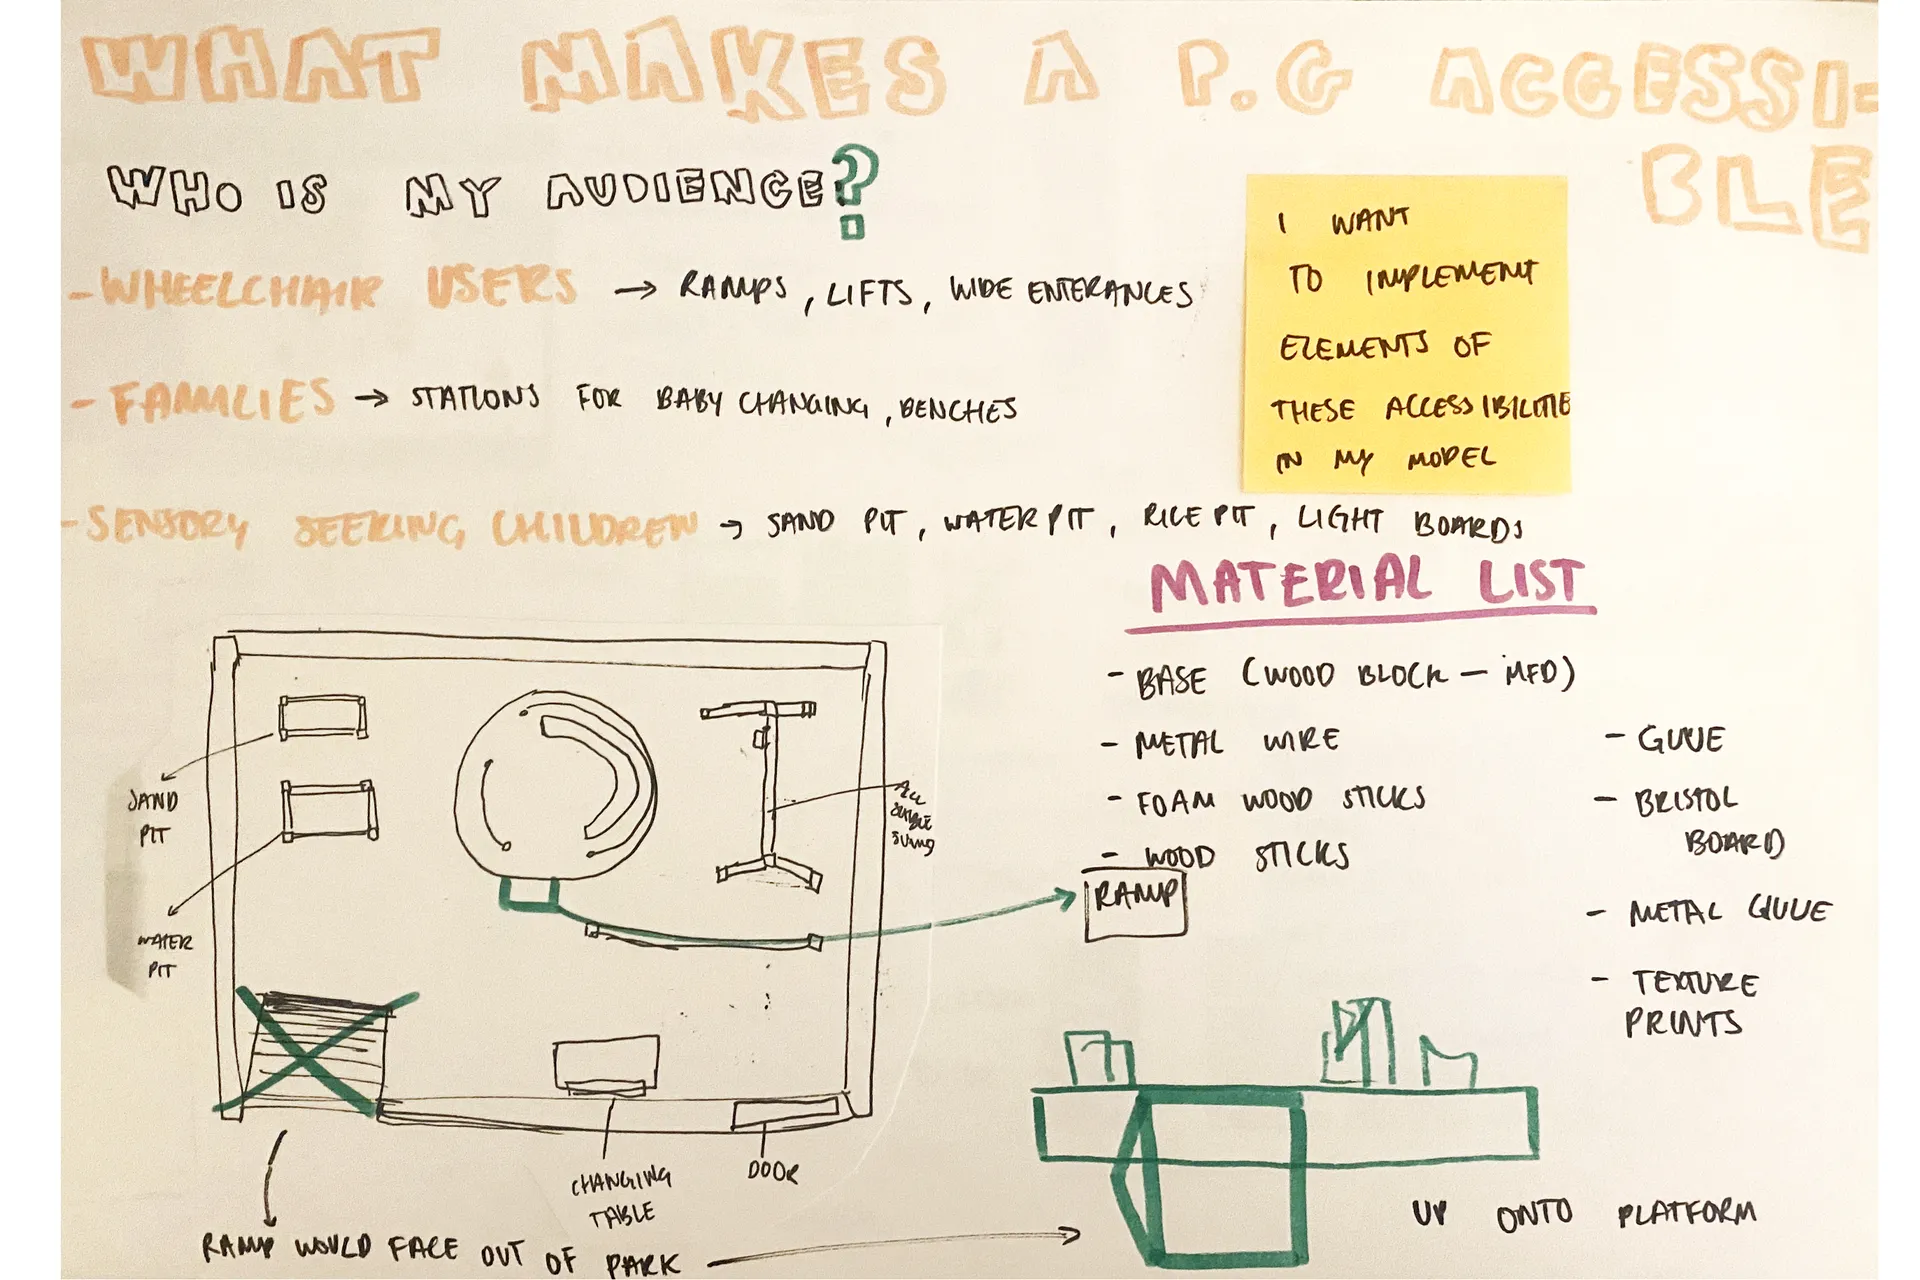 WHAT MAKES A P.G ACCESSI-
BLE
WHO IS MY AUDIENCE?
- WHEELCHAIR USERS → RAMPS, LIFTS, WIDE ENTERANCES
- FAMILIES → STATIONS FOR BABY CHANGING, BENCHES
- SENSORY SEEKING CHILDREN → SAND PIT, WATER PIT, RICE PIT, LIGHT BOARDS
I WANT
TO IMPLEMENT
ELEMENTS OF
THESE ACCESSIBILITIE
IN MY MODEL
SAND
PIT
WATER
PIT
SWING
CHANGING
TABLE
DOOR
RAMP WOULD FACE OUT OF PARK
MATERIAL LIST
- BASE (WOOD BLOCK - MFD)
- METAL WIRE
- FOAM WOOD STICKS
- WOOD STICKS
RAMP
- GLUE
- BRISTOL
BOARD
- METAL GLUE
- TEXTURE
PRINTS
UP ONTO PLATFORM